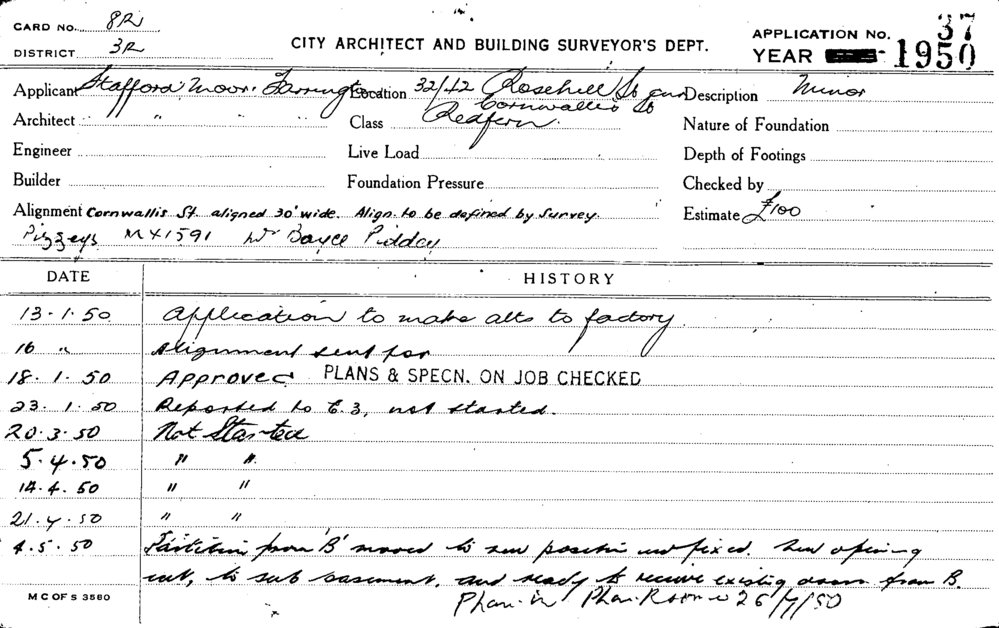 CARD No. 8R
DISTRICT 3R
CITY ARCHITECT AND BUILDING SURVEYOR'S DEPT.
APPLICATION No. 37
YEAR 1950
Applicant Stafford Moor Farrington Location 32/42 Rosehill St Description Minor
Cornwallis St
Architect " " Class Redfern. Nature of Foundation
Engineer Live Load Depth of Footings
Builder Foundation Pressure Checked by
Alignment Cornwallis St. aligned 30' wide. Align. to be defined by Survey Estimate £100
Pizzeys MX1591 Mr Boyce Pidday
DATE HISTORY
13.1.50 Application to make alts to factory.
16 " Alignment sent for
18.1.50 Approved PLANS & SPECN. ON JOB CHECKED
23.1.50 Reported to E.3, not started.
20.3.50 Not Started
5.4.50 " "
14.4.50 " "
21.4.50 " "
4.5.50 Partition from 'B' moved to new position and fixed. New opening
cut, to sub basement, and ready to receive existing doors from B.
M C OF S 3580
Plan in Plan Room 26/7/50